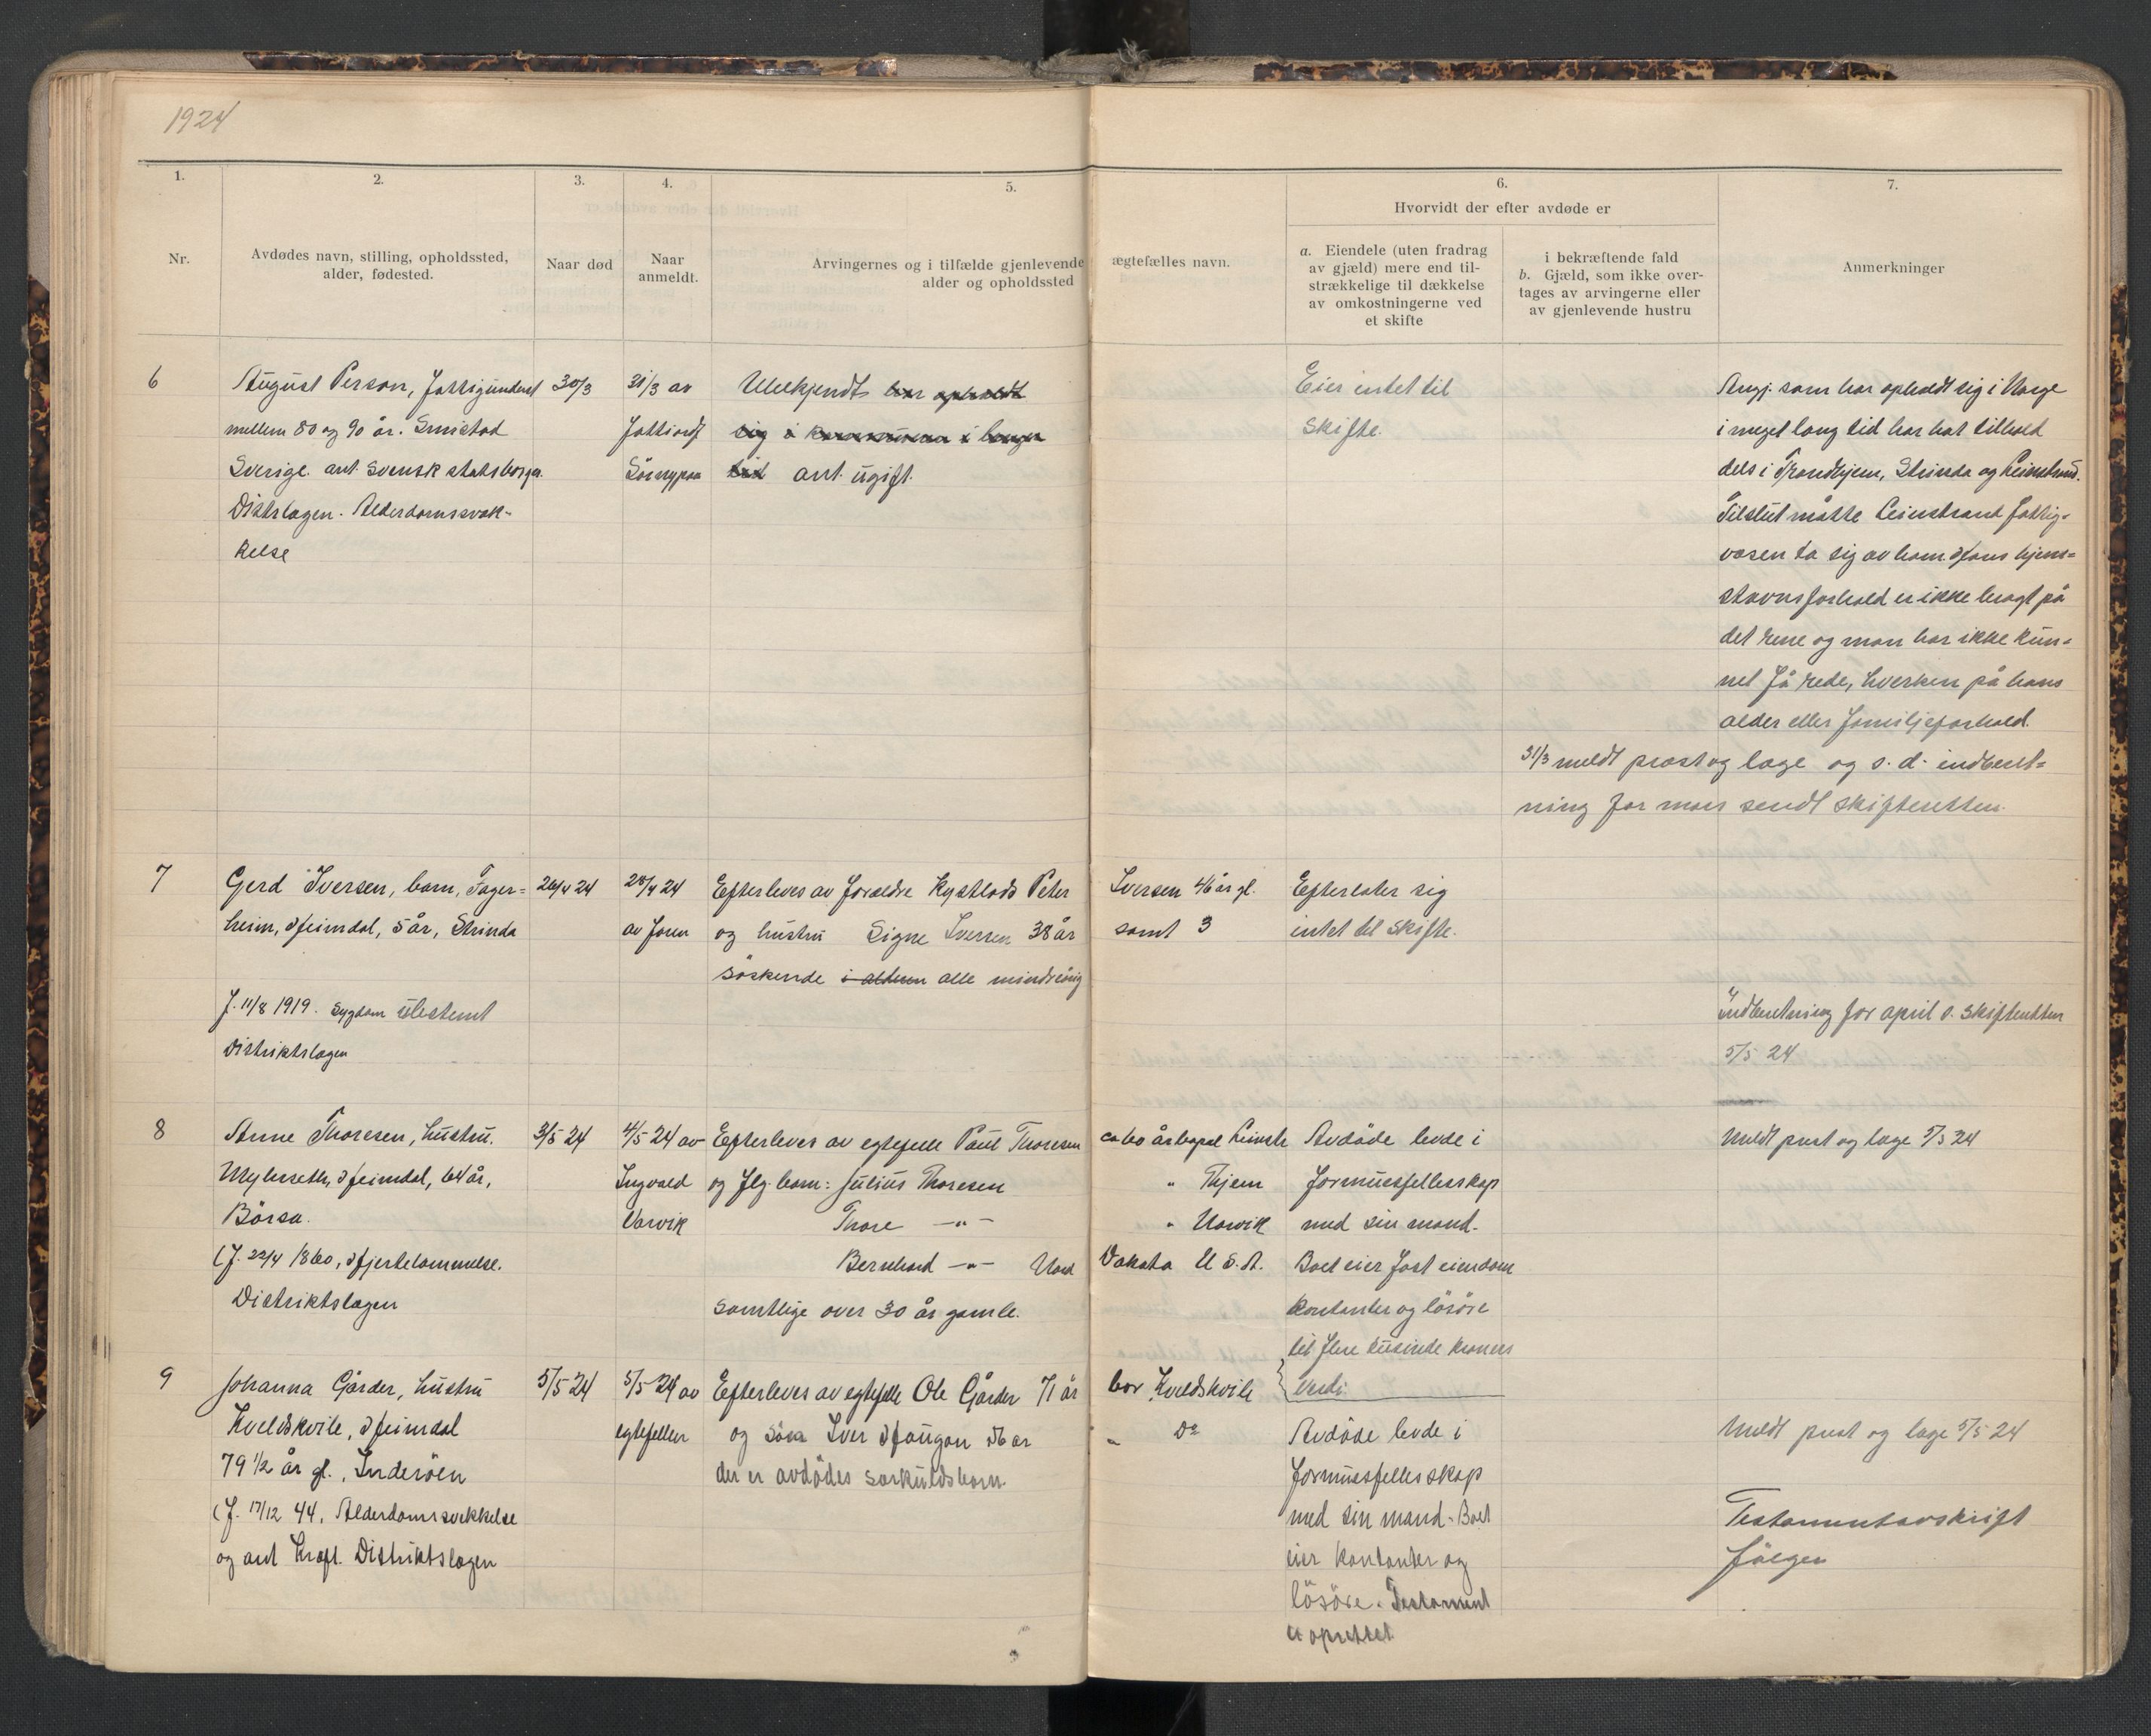 1924
1.
2.
3.
4.
5.
6.
7.
Nr.
Avdødes navn, stilling, opholdssted,
alder, fødested.
Naar død
Naar
anmeldt.
Arvingernes og i tilfælde gjenlevende
alder og opholdssted
ægtefælles navn.
Hvorvidt der efter avdøde er
a. Eiendele (uten fradrag
av gjæld) mere end til-
strækkelige til dækkelse
av omkostningerne ved
et skifte
i bekræftende fald
b. Gjæld, som ikke over-
tages av arvingerne eller
av gjenlevende hustru
Anmerkninger
6
August Person, Fattigunderst
mellem 80 og 90 år.
Sverige. ant. Svensk statsborger.
Distslægen. Alderdomssvæk-
kelse
30/3
31/3 av
Fattiordf
Ubekjendt har opholdt
sig i kommunen i lengere
tid ant. ugift.
Eier intet til
Skifte.
Angj. som har opholdt sig i Norge
i meget lang tid har hat tilhold
dels i Trondhjem, Strinda og Leinstrand.
Tilslut måtte Leinstrand fattig-
væsen ta sig av ham. Hans hjem-
stavnsforhold er ikke bragt på
det rene og man har ikke kun-
net få rede, hverken på hans
alder eller familjeforhold.
31/3 meldt prost og læge og s. d. indberet-
ning for mars sendt skifteretten.
7
Gerd Iversen, barn, Fager-
heim, Heimdal, 5 år, Strinda
f. 11/8 1919. Sygdom ubestemt
Distriktslægen
26/4 24
28/4 24
av faren
Efterleves av forældre Kystlods Peter
og hustru Signe Iversen 38 år
søskende i alderen alle mindreårig
Iversen 46 år gl.
samt 3
Efterlater sig
intet til Skifte.
Indberetning for april s. Skifteretten
5/5 24
8
Anne Thoresen, hustru.
Heimdal, 64 år,
Börsa.
(f. 22/4 1860, Hjertelammelse.
Distriktslægen
3/5 24
4/5 24 av
Ingvald
Varvik
Efterleves av egtefelle Paul Thoresen
og flg. barn: Julius Thoresen
Thore —"—
Bernhard —"— Nord
samtlige over 30 år gamle.
ca 60 år bopæl Leinstr
" Thjem
" Narvik
Dakota U. S. A.
Avdöde levde i
formuesfellesskap
med sin mand.
Boet eier fast eiendom
kontanter og lösöre
til flere tusinde kroners
verdi.
Meldt prest og læge 5/5 24
9
Johanna Gårder, hustru
Kveldskvile, Heimdal
79 1/2 år gl., Inderöen
(f. 17/12 44, Alderdomssvekkelse
og ant Kræft. Distriktslægen
5/5 24
5/5 24 av
egtefellen
Efterleves av egtefelle Ole Gårder 71 år
og sön Iver Haugan 56 år
der er avdödes særkuldsbarn.
bor Kveldskvile
" Do
Avdöde levde i
formuesfellesskap
med sin mand. Boet
eier kontanter og
lösöre. Testament
er oprettet.
Meldt prest og læge 5/5 24
Testamentavskrift
følger